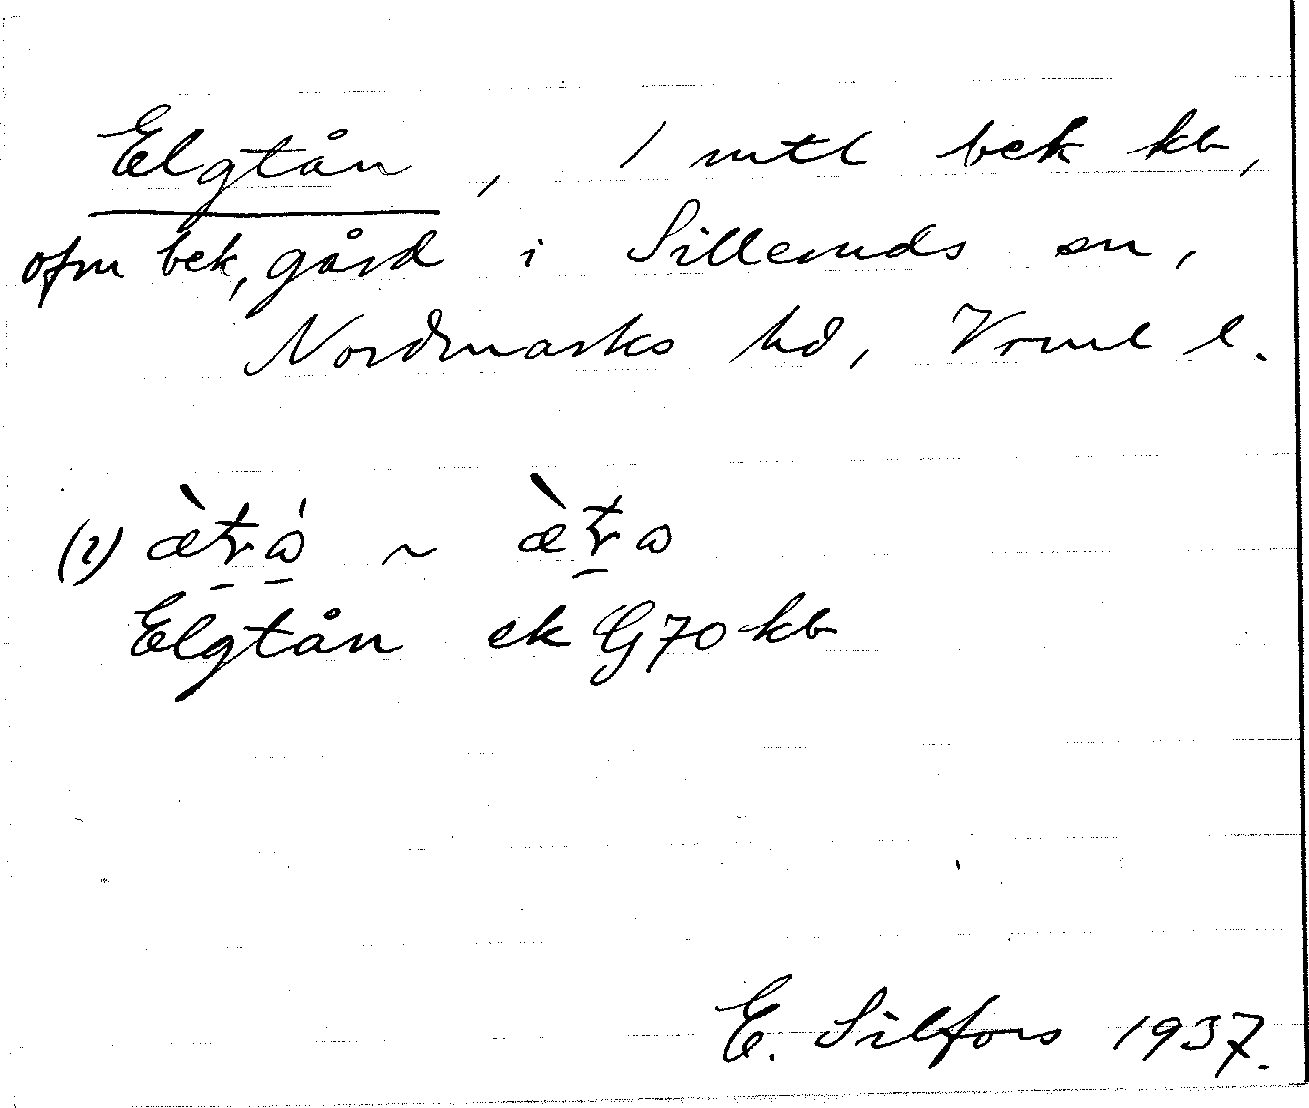 Elgtån, 1 mtl bek kb,
ofm bek, gård i Silleruds sn,
Nordmarks hd, Vrml l.
~
Elgtån ek G70 kb
E. Silfors 1937.